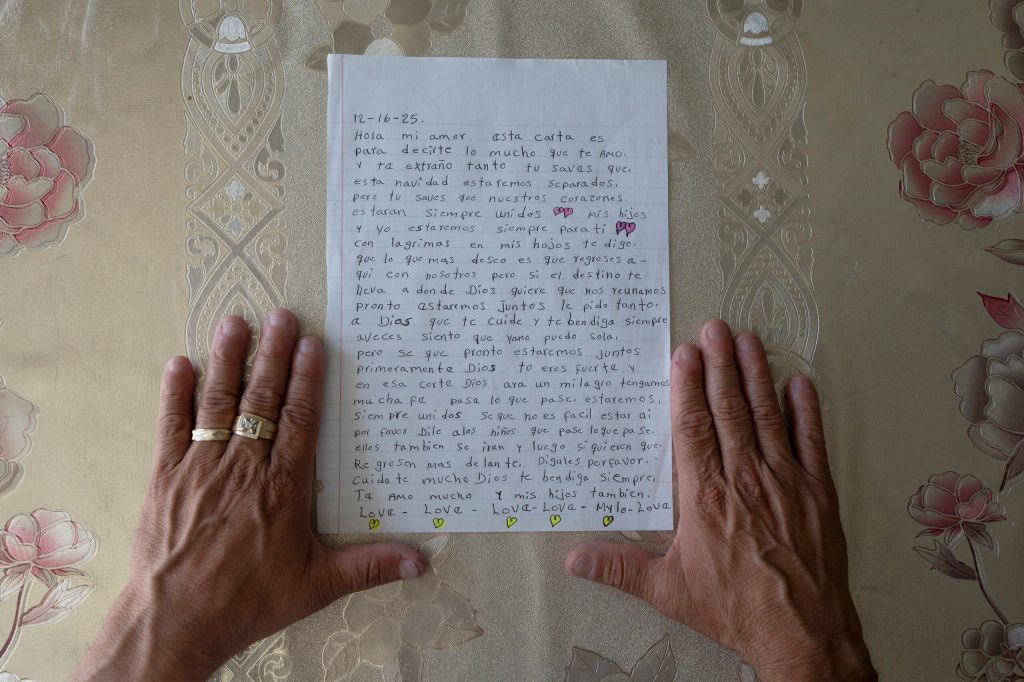 12-16-25.
Hola mi amor esta carta es
para decirte lo mucho que te Amo.
y te extraño tanto tu saves que,
esta navidad estaremos separados,
pero tu saves que nuestros corazones.
estaran siempre unidos mis hijos
y yo estaremos siempre para ti
con lagrimas en mis hojos te digo.
que lo que mas deseo es que regreses a-
qui con nosotros pero si el destino te
lleva a donde Dios quiere que nos reunamos
pronto estaremos juntos le pido tanto.
a Dios que te cuide y te bendiga siempre
aveces siento que yano puedo sola.
pero se que pronto estaremos juntos
primeramente Dios tu eres fuerte y
en esa corte Dios ara un milagro tengamos
mucha fe pase lo que pase, estaremos.
siempre unidos se que no es facil estar ai
por favor Dile alos niños que pase loque pase.
ellos tambien se iran y luego si quieren que.
Regresen mas delante. Digales porfavor.
Cuidate mucho Dios te bendiga siempre,
Te Amo mucho y mis hijos tambien.
Love - Love - Love - Love - Mylo - Love